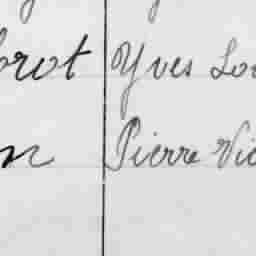 brot Yves Lou
n Pierre Vic